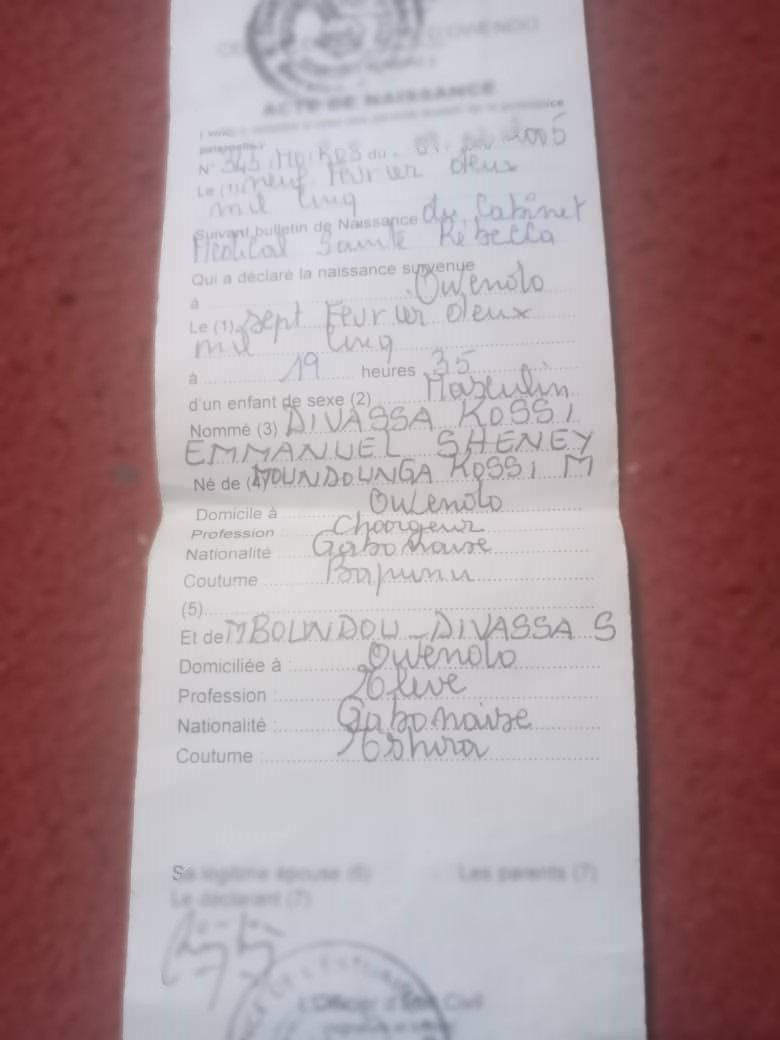 D'OWENDO
ACTE DE NAISSANCE
N° 345 du 2005
Le (1) neuf février deux
mil cinq
Suivant bulletin de Naissance du Cabinet
Medical Sainte Rebecca
Qui a déclaré la naissance survenue
à Owendo
Le (1) sept Février deux
mil cinq
à 19 heures 35
d'un enfant de sexe (2) Masculin
Nommé (3) DIVASSA KOSSI
EMMANUEL SHENEY
Né de (4) MOUNDOUNGA KOSSI M
Domicile à Owendo
Profession Chargeur
Nationalité Gabonaise
Coutume Bapunu
(5)
Et de MBOUNDOU-DIVASSA S
Domiciliée à : Owendo
Profession : Elève
Nationalité : Gabonaise
Coutume : Eshira
Sa légitime épouse (6) Les parents (7)
Le déclarant (7)
L'Officier d'Etat Civil